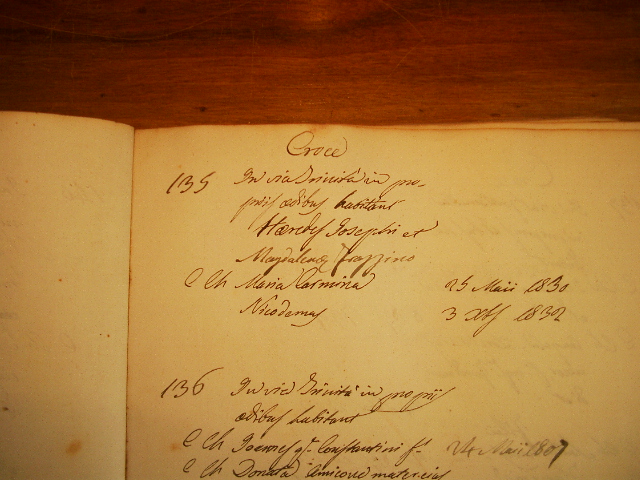 Croce
135 In via Trinità in pro-
prijs ædibus habitant
Hæredes Josephi et
Magdalenæ Frazzino
C Ch Maria Carmina 25 Maii 1830
Nicodemus 3 Xbs 1832
136 In via Trinità in proprijs
ædibus habitant
C Ch Joannes qm Constantini f. 24 Maii 1807
C Ch Donata